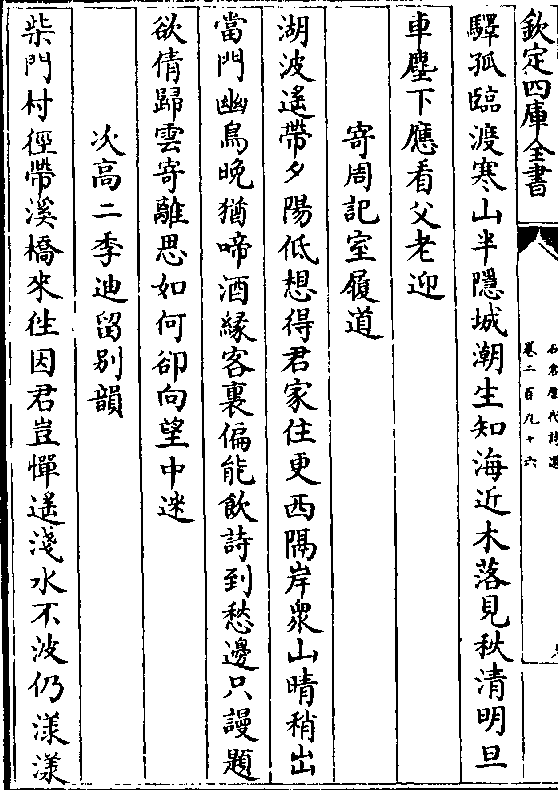 欽定四庫全書
石倉歷代詩選
卷二百九十六
驛孤臨渡寒山半隱城潮生知海近木落見秋清明旦
車塵下應看父老迎
寄周記室履道
湖波遙帶夕陽低想得君家住更西隔岸衆山晴稍出
當門幽鳥晚猶啼酒緣客裏偏能飲詩到愁邊只謾題
欲倩歸雲寄離思如何卻向望中迷
次高二季迪留别韻
柴門村徑帶溪橋來徃因君豈憚遙淺水不波仍漾漾